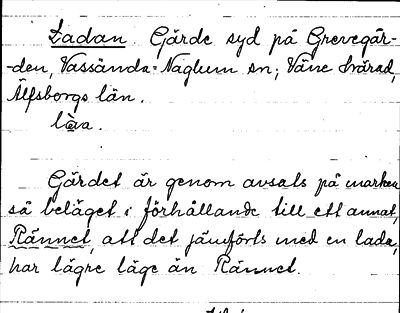 Ladan. Gärde syd på Grevegär-
-den, Vassända-Naglum sn; Väne härad,
Älfsborgs län.
làa.
Gärdet är genom avsats på marken
så beläget i förhållande till ett annat,
Rännet, att det jämförts med en lada,
har lägre läge än Rännet.